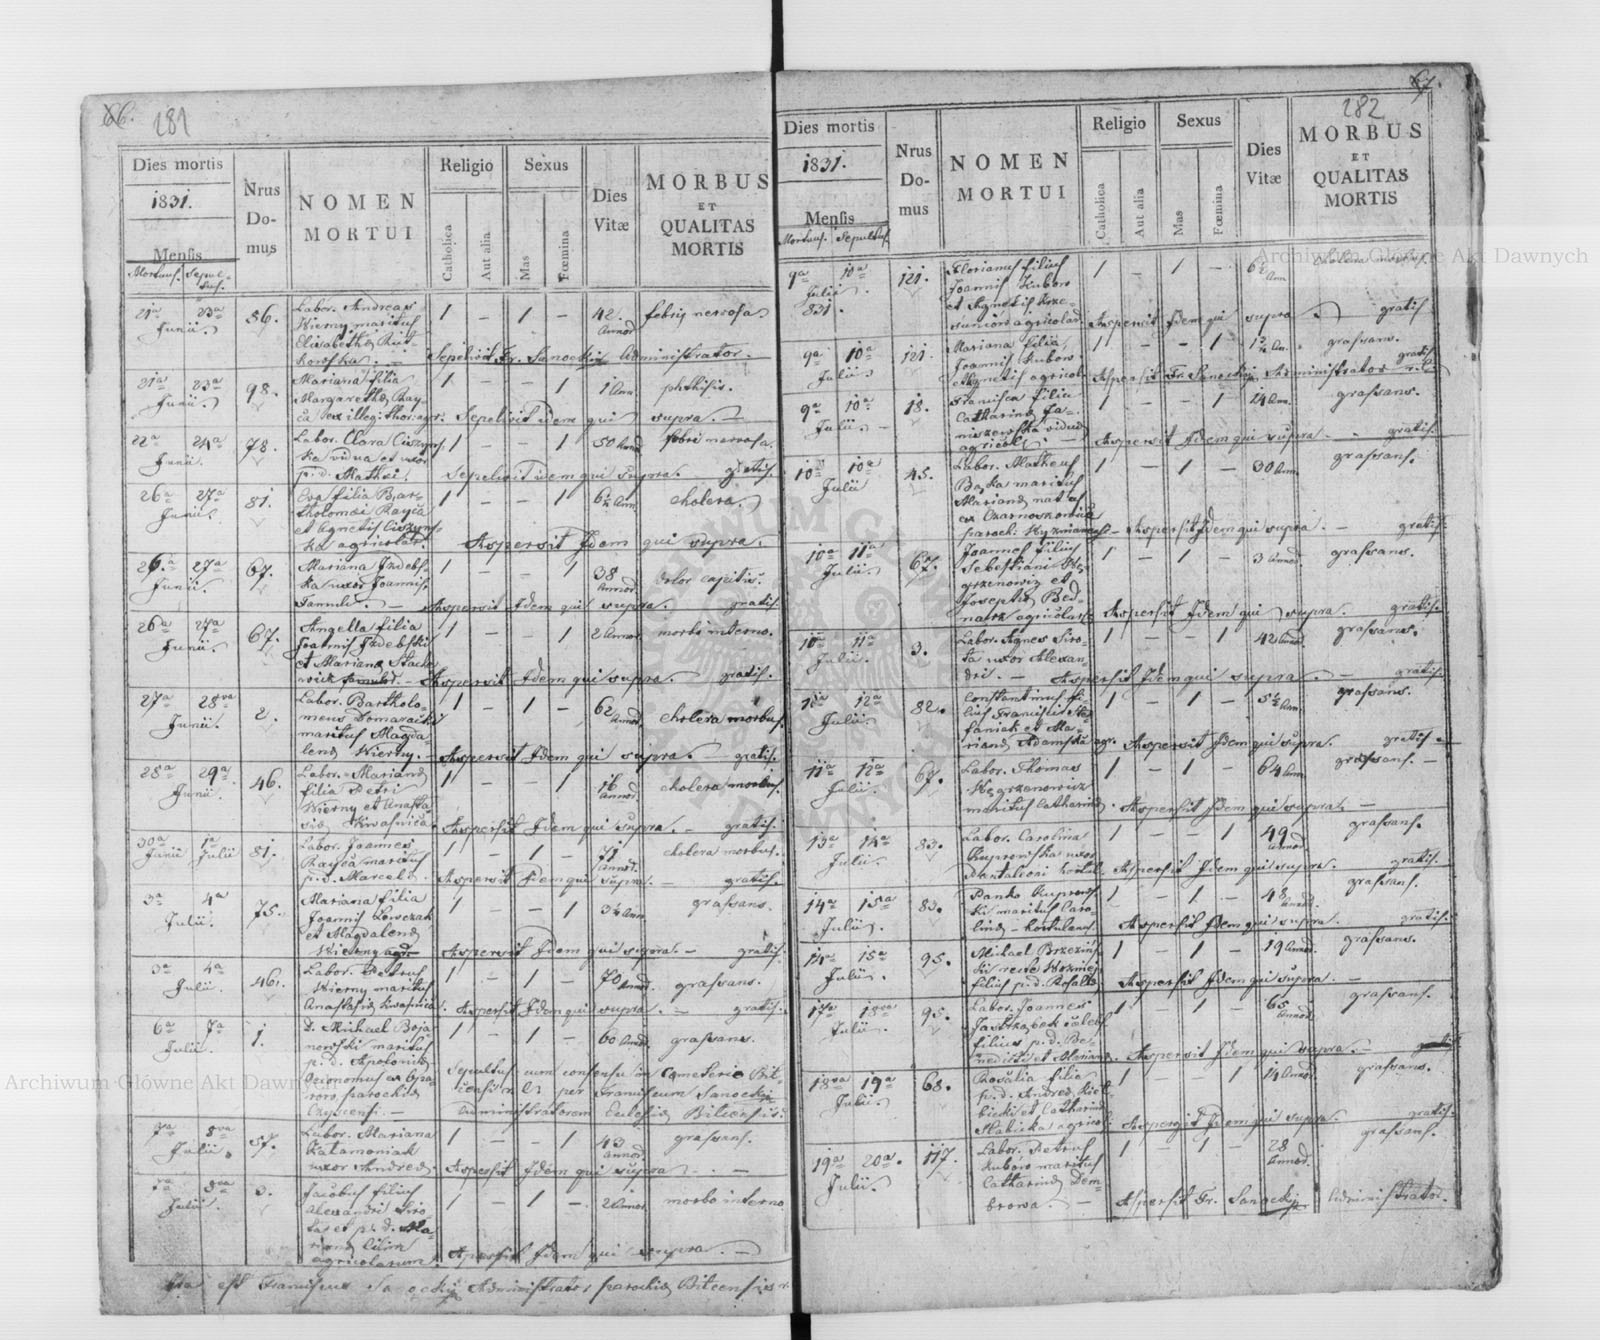 86.
281
Dies mortis
1831.
Mensis
Mortuus. Sepultus.
Nrus Domus
NOMEN
MORTUI
Religio
Catholica
Aut alia
Sexus
Mas
Fœmina
Dies
Vitæ
MORBUS
ET
QUALITAS
MORTIS
21a 23a 86. Labor. Andreas 1 — 1 — 42. febris nervosa.
Junii. Wierny maritus Annor
Elisabethæ
Sepelivit Fr. Sanocki Administrator.
21a 23a 98. Mariana filia 1 — — 1 1 Ann phthisis.
Junii. Margarethæ
Sepelivit idem qui supra. —
22a 24a 78. Labor. Clara 1 — — 1 50 Ann febri nervosa.
Junii. vidua et uxor
p. d. Mathei. Sepelivit idem qui supra. gratis.
26a 27a 81. Eva filia Bar- 1 — — 1 6½ Ann cholera.
Junii. tholomæi Rayca
et Agnetis
Aspersit Idem qui supra.
26a 27a 67. Mariana Izdebs- 1 — — 1 38 dolor capitis.
Junii. ka uxor Joannis. Annor
Famuli. — Aspersit Idem qui supra. gratis.
26a 27a 67. Angella filia 1 — — 1 2 Annor morbo interno.
Junii. Joannis Izdebski
et Mariana
Aspersit Idem qui supra. gratis.
27a 28va 2. Labor. Bartholo- 1 — 1 — 62 cholera morbus.
Junii. meus Domaracki Annor
maritus Magda-
lenæ Wierny. — Aspersit Idem qui supra. — gratis.
28a 29a 46. Labor. Mariana 1 — — 1 16 cholera morbus.
Junii. filia Petri Annor
Wierny et Anasta-
siæ Kwasnica. Aspersit Idem qui supra. — gratis.
30a 1a 81. Labor. Joannes 1 — 1 — 71 cholera morbus.
Junii Julii Rayca maritus Annor.
p. d. Marcela. Aspersit Idem qui supra. — gratis.
3a 4a 75. Mariana filia 1 — — 1 3½ Ann. grassans.
Julii. Joannis
et Magdalenæ
Wierny agr. Aspersit Idem qui supra. — gratis.
3a 4a 46. Labor. Petrus 1 — 1 — 70 Annor. grassans.
Julii. Wierny maritus
Anastasiæ Kwasnica. Aspersit Idem qui supra. — gratis.
6a 7a 1. D. Michael Boja- 1 — 1 — 60 Annor. grassans.
Julii. nowski maritus
p. d. Apolonia
Oeconomus ex
parochia
Sepultus cum consensu in Cemeterio Bit-
per Franciscum Sanocki
Administratorem Ecclesiæ Bitcensis.
7a 8va 57. Labor. Mariana 1 — — 1 43 grassans.
Julii. Katamoniak Annor.
uxor Andreæ. Aspersit Idem qui supra. —
7a 8va 3. Jacobus filius 1 — 1 — 2 Annor. morbo interno
Julii. Alexandri Siro-
ta et p. d. Ma-
rianæ
agricolarum. Aspersit Idem qui supra. —
Ita est Franciscus Sanocki Administrator parochiæ Bitcensis
87.
282
Dies mortis
1831.
Mensis
Mortuus. Sepultus.
Nrus Domus
NOMEN
MORTUI
Religio
Catholica
Aut alia
Sexus
Mas
Fœmina
Dies
Vitæ
MORBUS
ET
QUALITAS
MORTIS
9a 10a 121. Florianus filius 1 — 1 — 6½ Ann cholera morbus.
Julii Joannis Kuboro
831. et Agnetis
Aspersit Idem qui supra gratis
9a 10a 121. Mariana filia 1 — — 1 1¾ An. grassans.
Julii Joannis Kuboro
et Agnetis agricol. Aspersit Fr. Sanocki Administrator gratis
9a 10a 18. Francisca filia 1 — — 1 14 Ann. grassans.
Julii. Catharinæ
vidua
agricolæ. — Aspersit Idem qui supra — gratis.
10a 10a 45. Labor. Matheus 1 — 1 — 30 Ann. grassans.
Julii maritus
Marianæ natus
ex
Aspersit Idem qui supra. — gratis.
10a 11a 67. Joannes filius 1 — 1 — 3 Annor. grassans.
Julii. Sebestiani Wę-
grzenowicz et
Josepha Bed-
narz agricolar. Aspersit Idem qui supra. gratis.
11a 11a 3. Labor. Agnes Siro- 1 — — 1 42 Annor. grassans.
Julii. ta uxor Alexan-
dri. — Aspersit Idem qui supra. — gratis.
11a 12a 82. Constantinus fi- 1 — 1 — 5½ Ann. grassans.
Julii. lius Francisci Ste-
faniak et Ma-
riannæ Adamska agr. Aspersit Idem qui supra. gratis
11a 12a 67. Labor. Thomas 1 — 1 — 64 Ann. grassans. —
Julii. Węgrzenowicz
maritus Catharinæ. Aspersit Idem qui supra. —
13a 14a 83. Labor. Carolina 1 — — 1 49 grassans.
Julii. Kuprowska uxor Annor.
Pantaleoni Aspersit Idem qui supra. gratis.
14a 15a 83. Panko Kuprows- 1 — 1 — 48 grassans.
Julii. ki maritus Caro- Annor.
linæ — hortulanus. Aspersit Idem qui supra. gratis.
14a 15a 95. Michael Brzezin- 1 — 1 — 19 Annor. grassans.
Julii. ski
filius p. d. Rosaliæ. Aspersit Idem qui supra. —
17a 18va 95. Labor. Joannes 1 — 1 — 65 grassans.
Julii. Jastrzabek cælebs Annor.
filius p. d. Be-
nedicti et Mariana. Aspersit Idem qui supra. —
18va 19a 68. Rosalia filia 1 — — 1 14 Annor. grassans.
Julii. p. d. Andreæ
et Catharinæ
agricol. Aspersit Idem qui supra. gratis.
19a 20a. 117. Labor. Petrus 1 — 1 — 28 grassans.
Julii. Kuboro maritus Annor.
Catharinæ Dem-
browa. — Aspersit Fr. Sanocki Administrator.
Archiwum Główne Akt Dawnych